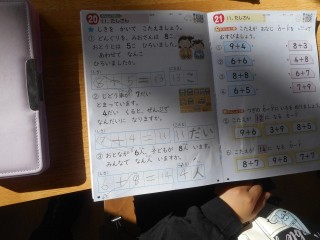 20
11. たしざん
しきを かいて こたえましょう。
① どんぐりを、みおさんは 8こ、
おとうとは 5こ
ひろいました。
あわせて なんこ
ひろいましたか。
8+5=13 13こ
② じどう車が 7だい
とまっています。
4だい くると、ぜんぶで
なんだいに なりますか。
7+4=11 11だい
③ おとなが 6人、子どもが 8人 います。
みんなで なん人 いますか。
6+8=14 14人
21
11. たしざん
こたえが おなじ カードを
むすびましょう。
9+4
8+3
6+6
4+8
8+8
6+7
6+5
7+9
9+6 3+9 8+5
8+7 9+8 7+7